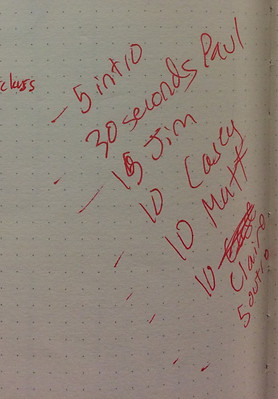 - 5 intro
30 seconds Paul
- 15 Jim
10 Casey
10 Matt
10 Claire
5 outro